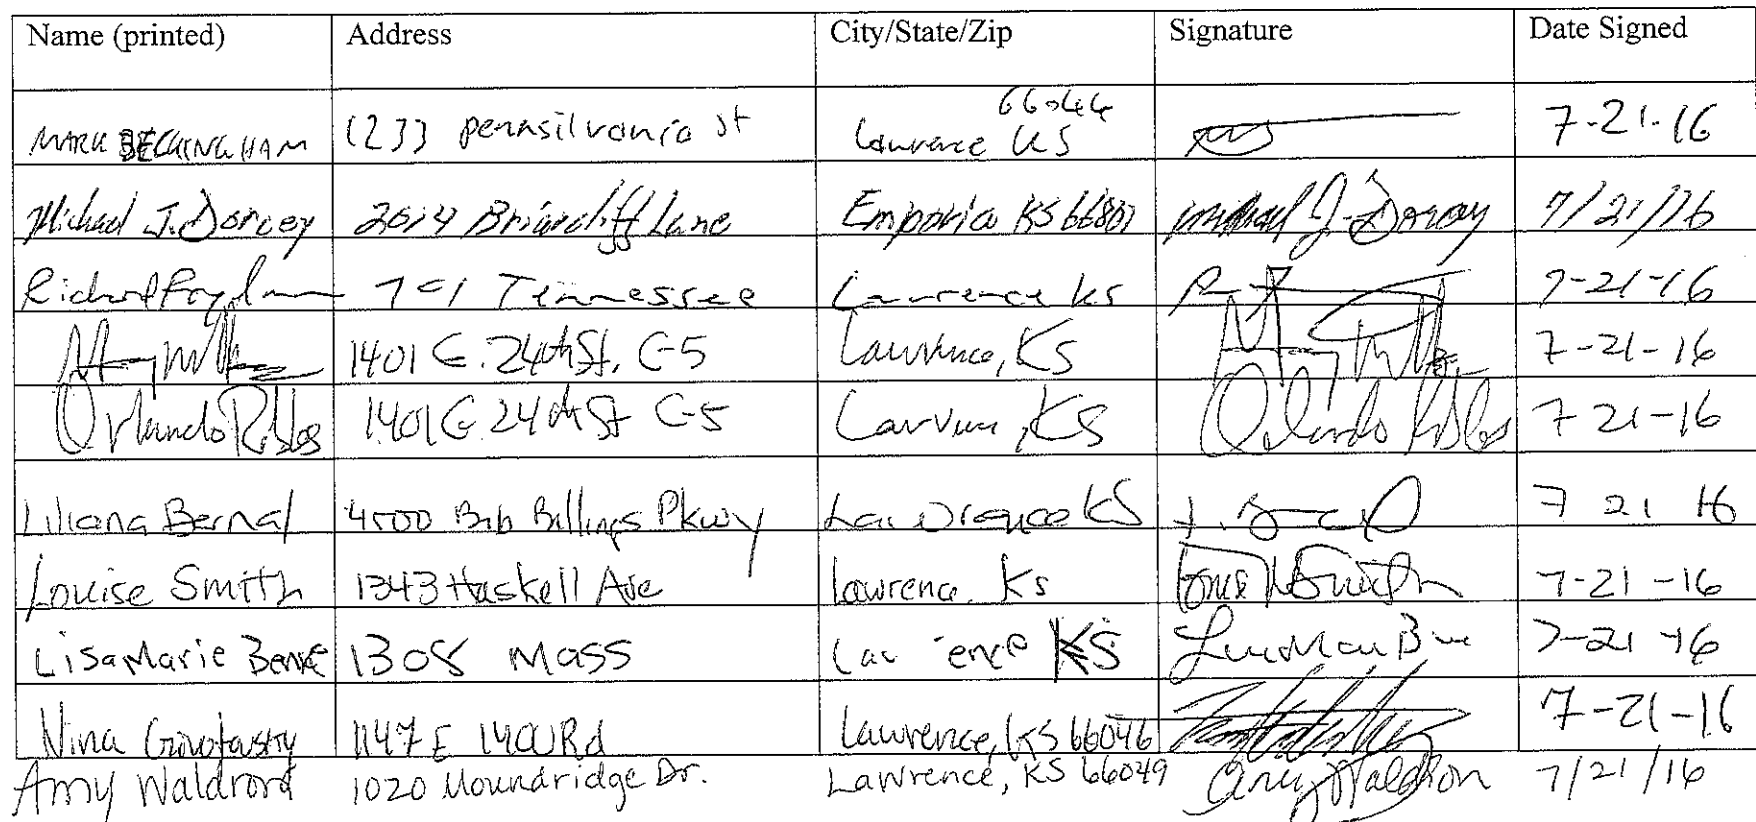 Name (printed) Address City/State/Zip Signature Date Signed
66044
MARK BECKINGHAM 1233 pennsilvania st Lawrence KS 7-21-16
Michael J. Dorcey 2014 Briarcliff Lane Emporia KS 66801 Michael J. Dorcey 7/21/16
Richard 701 Tennessee Lawrence KS 7-21-16
1401 E. 24th St. C-5 Lawrence, KS 7-21-16
Orlando Robles 1401 E 24th St C-5 Lawrence, KS Orlando Robles 7 21-16
Liliana Bernal 4500 Bob Billings Pkwy Lawrence KS 7 21 16
Louise Smith 1343 Haskell Ave Lawrence, Ks Smith 7-21-16
LisaMarie 1308 Mass Lawrence KS 7-21-16
Nina 1147 E 1400 Rd Lawrence, KS 66046 7-21-16
Amy Waldron 1020 Moundridge Dr. Lawrence, KS 66049 Amy Waldron 7/21/16